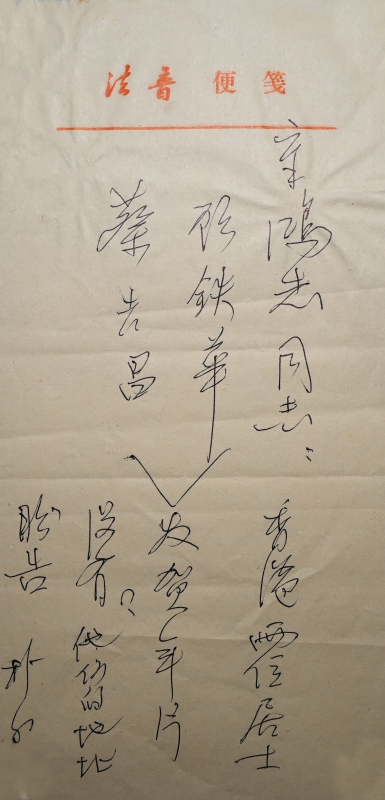 法音 便笺
辛鴻志同志：
香港两位居士
顾铁華
蔡吉昌
发贺年片
没有？他们的地址
盼告 朴的